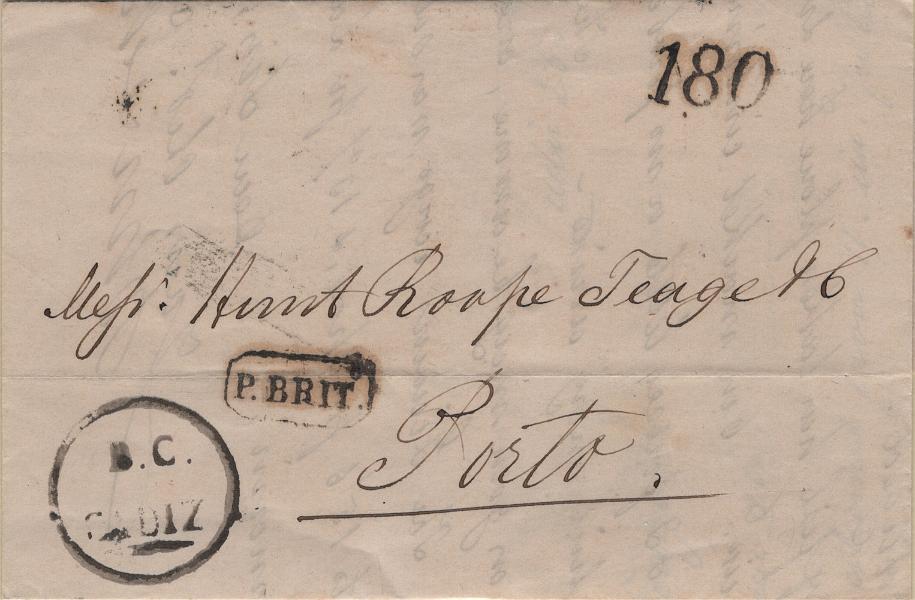 180
Messrs. Hunt Roope Teage & C
P. BRIT.
Porto.
B.C.
CADIZ